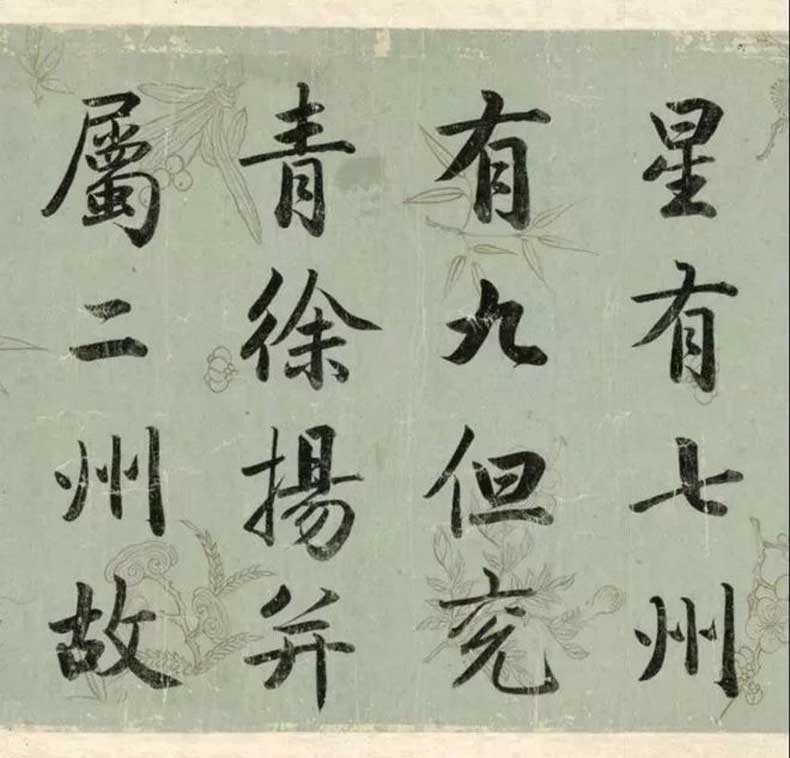 星有七州
有九但兖
青徐揚并
屬二州故